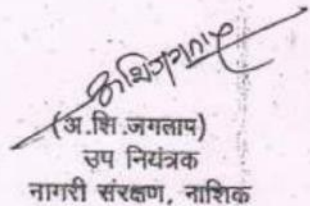 (अ.शि.जगताप)
उप नियंत्रक
नागरी संरक्षण, नाशिक